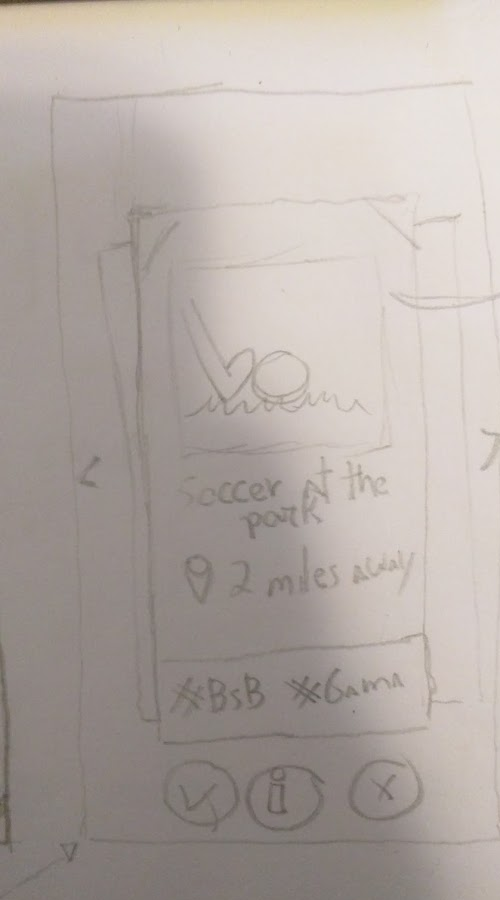 Soccer At the
park
2 miles away
#BSB #GAMA
i